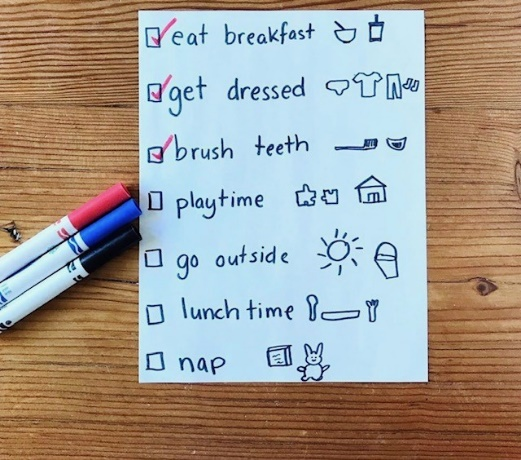 eat breakfast
get dressed
brush teeth
playtime
go outside
lunch time
nap